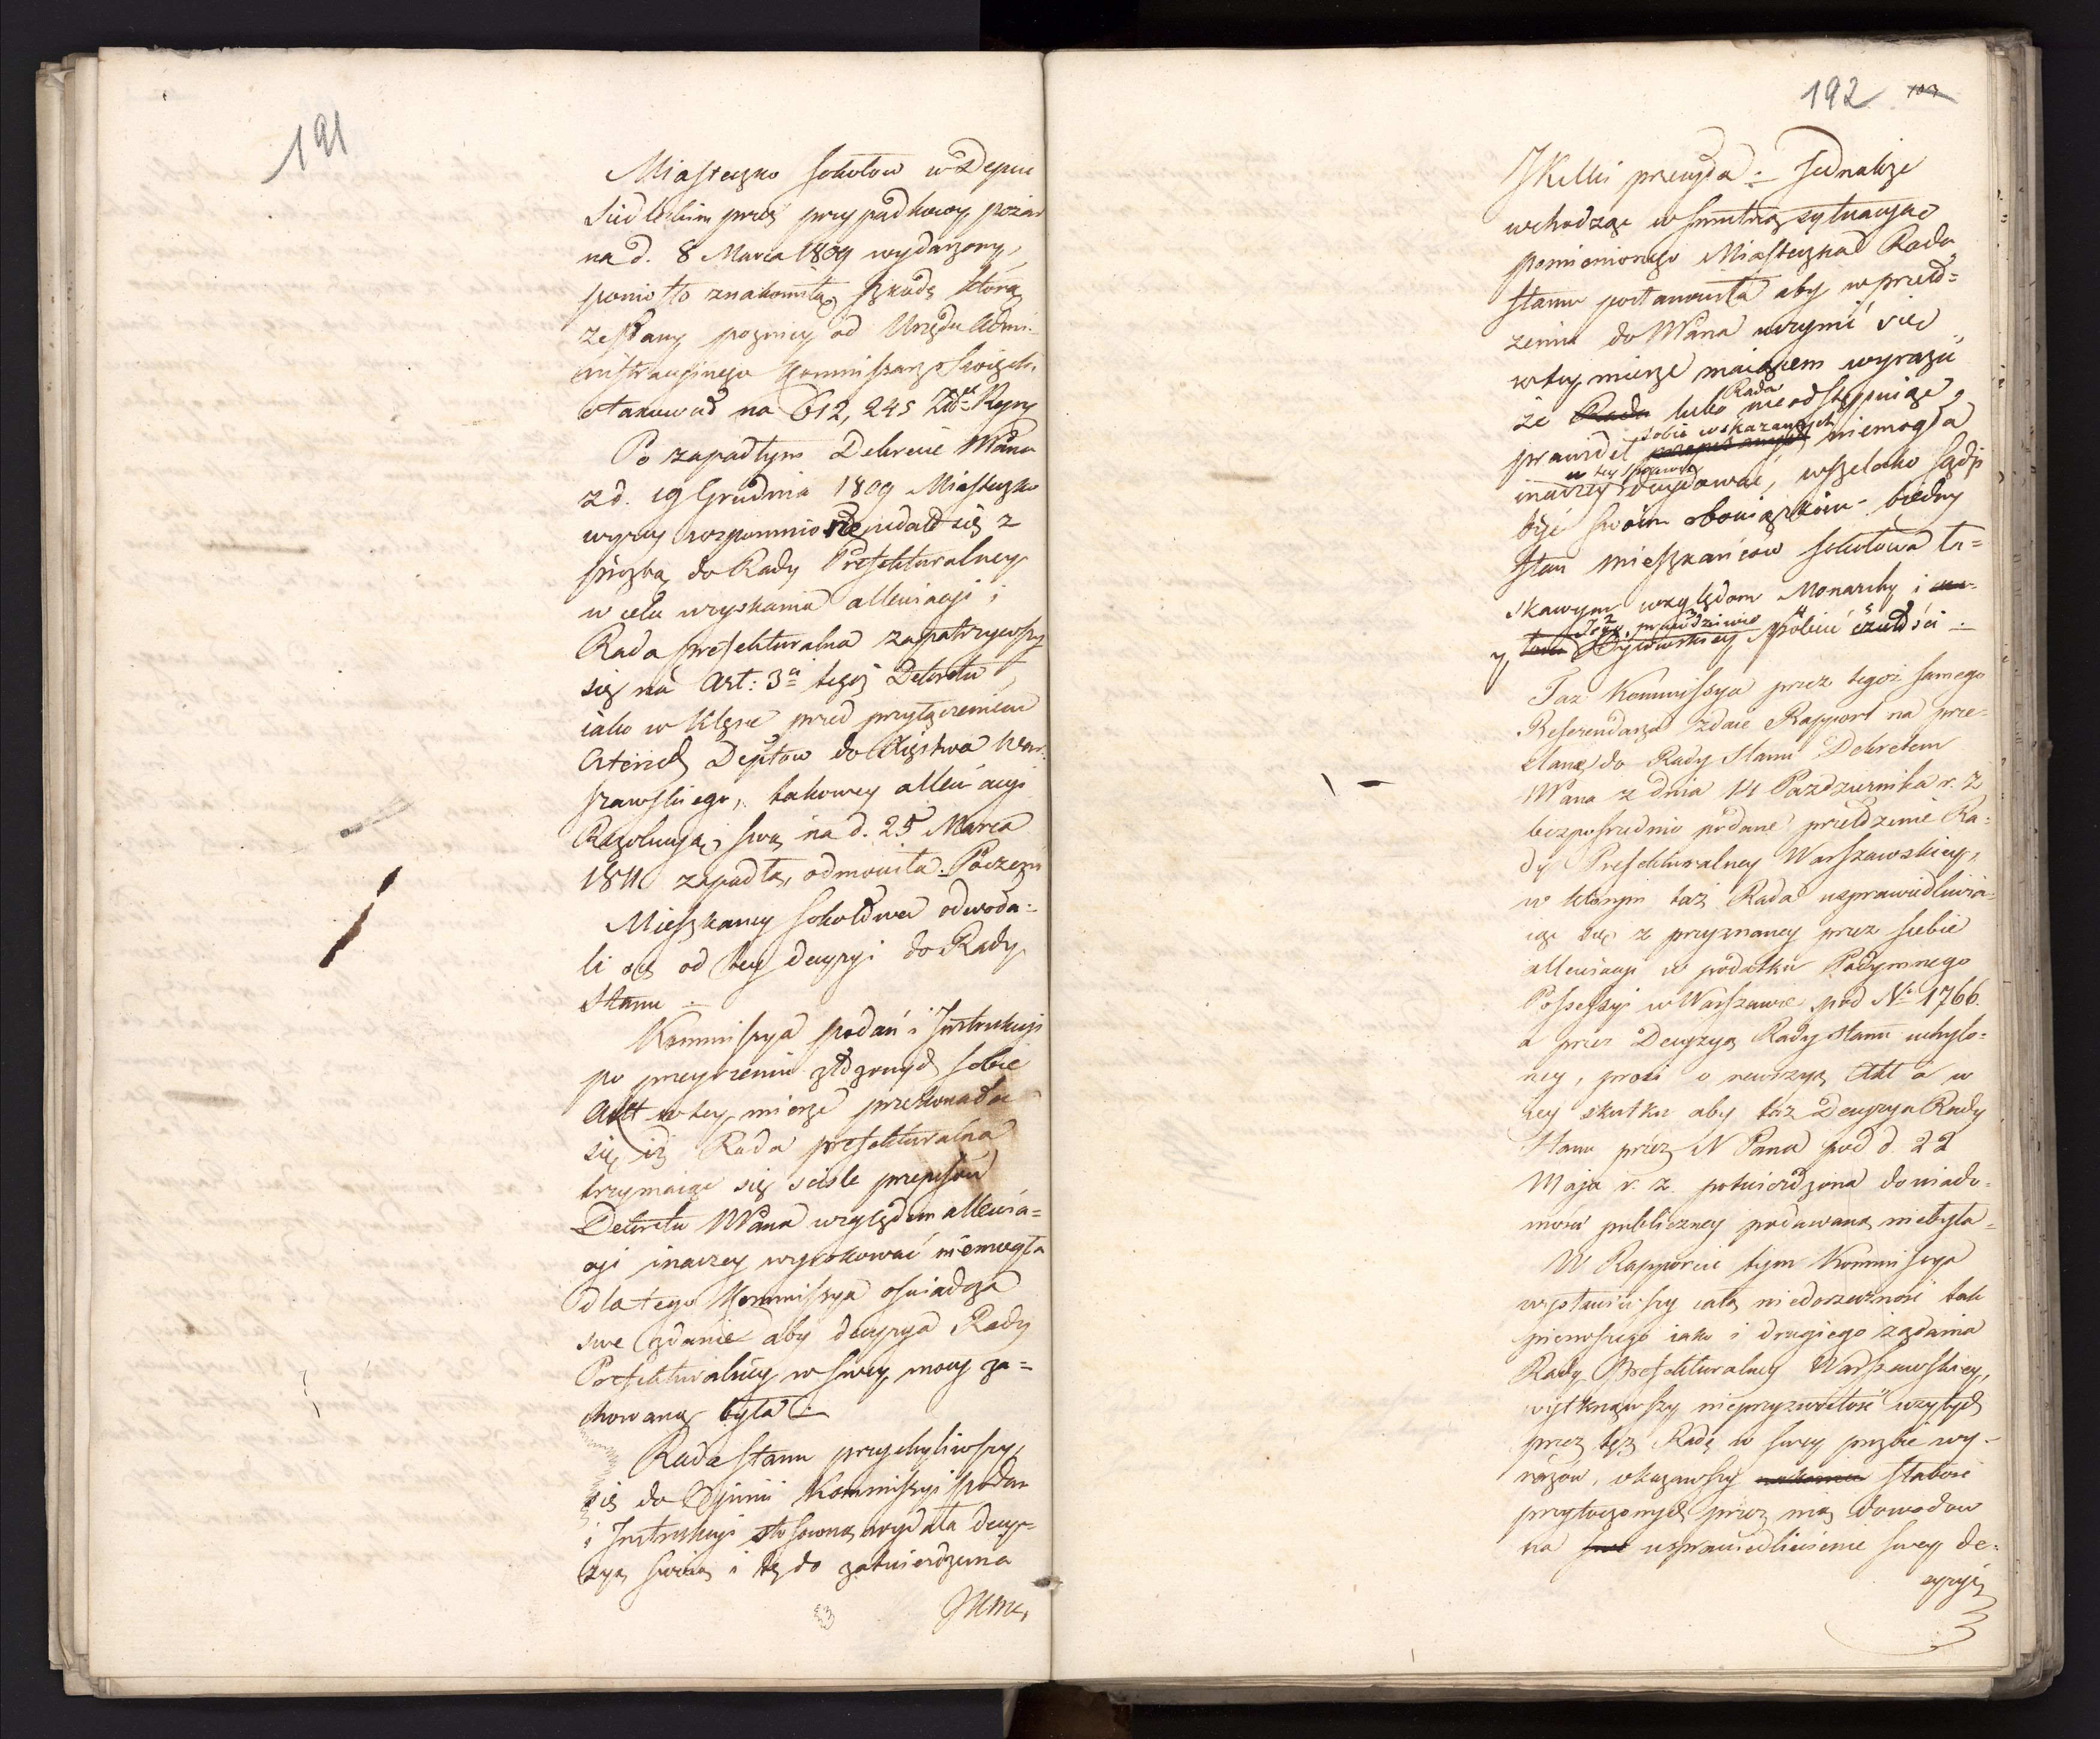 191
Miasteczko Sokołow w Depcie
Siedleckim przez przypadkowy pożar
na d. 8 Marca 1809 wydarzony,
poniosło znakomitą szkodę którą
zesłany pozniey od Urzędu Admi-
nistracyinego Kommissarz
otaxował na 612,245 Zł. Kupy
Po zapadłym Dekrecie NPana
z d. 19 Grudnia 1809 Miasteczko
wyzey wspomnione udało się z
prozbą do Rady Prefekturalney
w celu wzyskania allewiacyi;
Rada prefekturalna zapatrzywszy
się na Art: 3ci tegoż Dekretu
iako w klęsce przed przyłączeniem
czterech Deptow do Xięstwa War-
szawskiego, takowey allewiacyi
Rezolucyą swą na d. 25 Marca
1811 zapadłą, odmowiła. Poczem
Mieszkancy Sokołowa odwoła-
li się od tey decyzyi do Rady
Stanu.
Kommissya podań i Instrukcyi
po przeyrzeniu złożonych sobie
Akt w tey mierze przekonała
się iż Rada prefekturalna
trzymaiąc się scisle przepisów
Dekretu NPana względem allewia-
cyi inaczey wyrokować niemogła
dlatego Kommissya oświadcza
swe zdanie aby decyzya Rady
Prefekturalney w swey mocy za-
chowaną była.
Rada Stanu przychyliwszy
się do Opinii Kommissyi podań
i Instrukcyi stosowną wydała decy-
zyą swoią i tę do zatwierdzenia
192
JKMci przesyła. Jednakże
wchodząc w smutną sytuacyą
pomienionego Miasteczka Rada
Stanu postanowiła aby w przeło-
zeniu do NPana uczynić się
w tey mierze maiącem wyrazić
że Rada lubo Rada nieodstępuiąc
prawideł sobie wskazanych niemogła
inaczey w tey sprawie decydować, wszelako sądzi
być swoim obowiązkiem biedny
stan mieszkańców Sokołowa ła-
skawym względom Monarchy i
Jego prawdziwie czułości
Taż Kommissya przez tegoż samego
Referendarza zdaie Rapport na prze-
słane do Rady Stanu Dekretem
NPana z dnia 14 Pazdziernika r. z
bezposrednio podane przełożenie Ra-
dy Prefekturalney Warszawskiey,
w ktorym taż Rada usprawiedliwia-
iąc się z przyznaney przez siebie
allewiacyi w podatku Podymnego
Possessyi w Warszawie pod No 1766.
a przez Decyzyą Rady Stanu uchylo-
ney, prosi o rewizyą Akt a w
tey skutku aby taż Decyzya Rady
Stanu przez N Pana pod d. 22
Maja r. z. potwierdzona do wiado-
mosci publiczney podawaną niebyła
W Rapporcie tym Kommissya
wystawiwszy całą niedorzeczność tak
pierwszego iako i drugiego ządania
Rady Prefekturalney Warszawskiey,
wytknąwszy nieprzyzwoitość uzytych
przez tęż Radę w swey prozbie wy-
razow, okazawszy słabość
przytoczonych przez nią dowodow
na usprawiedliwienie swey de-
cyzyi